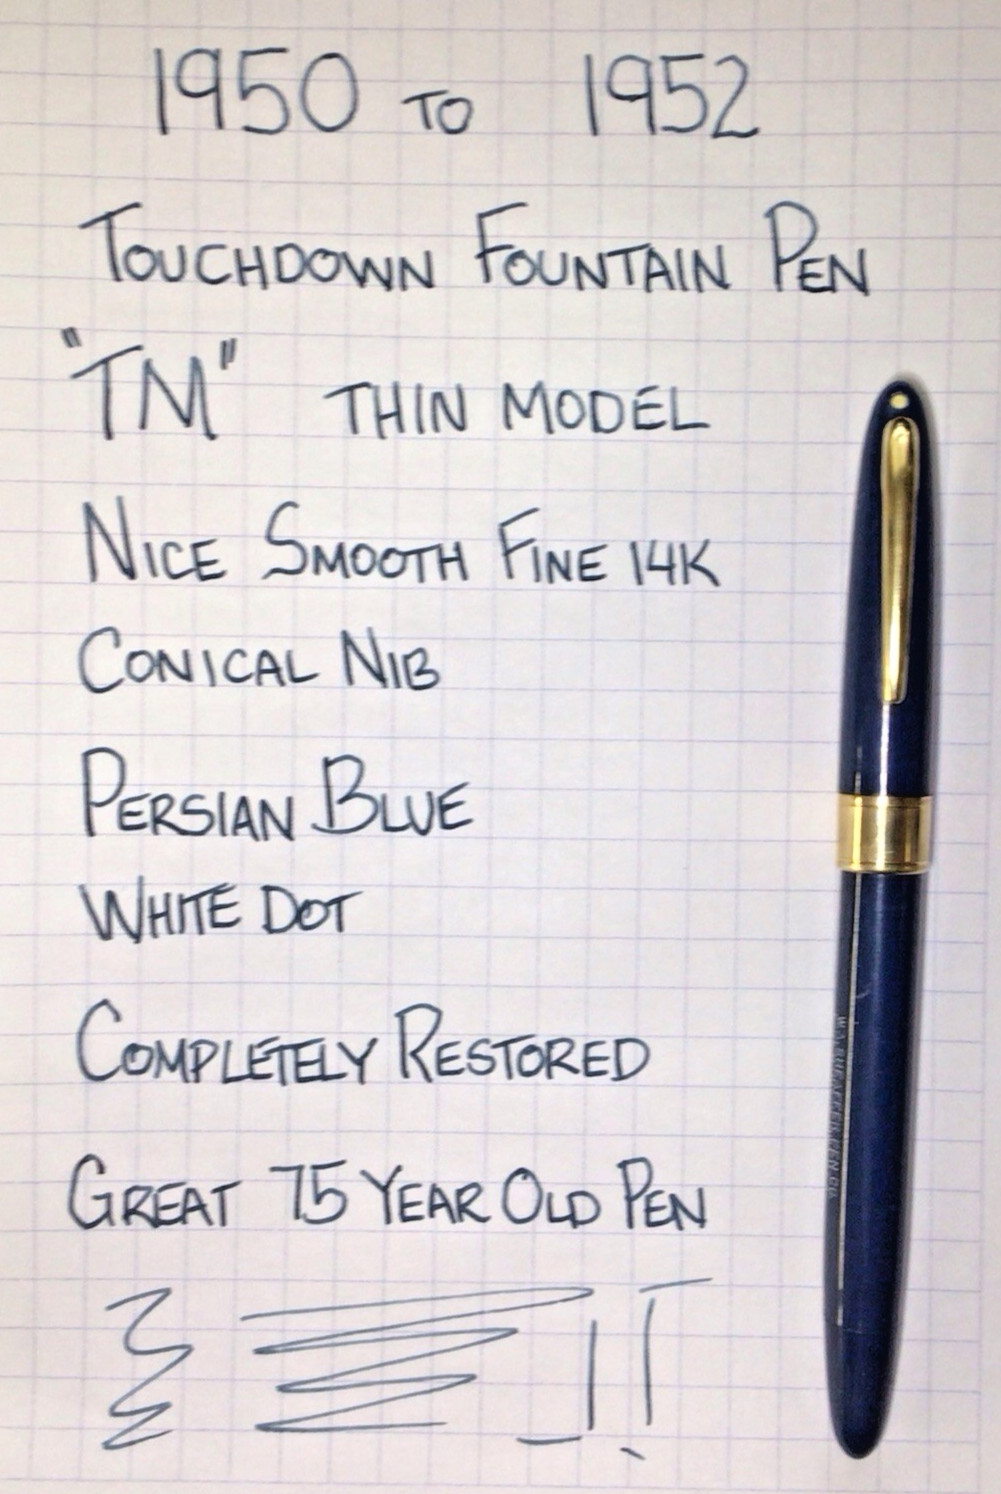 1950 TO 1952
TOUCHDOWN FOUNTAIN PEN
"TM" THIN MODEL
NICE SMOOTH FINE 14K
CONICAL NIB
PERSIAN BLUE
WHITE DOT
COMPLETELY RESTORED
GREAT 75 YEAR OLD PEN